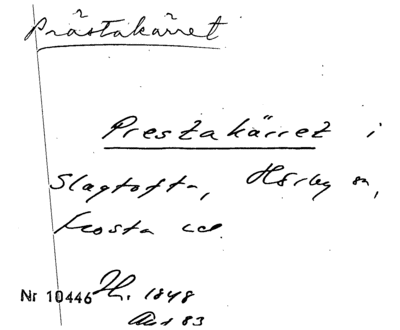 Prästakärret
Prestakärret i
Slagtofta, Hörby sn,
Frosta hd.
Nr 10446 Th. 1848
83